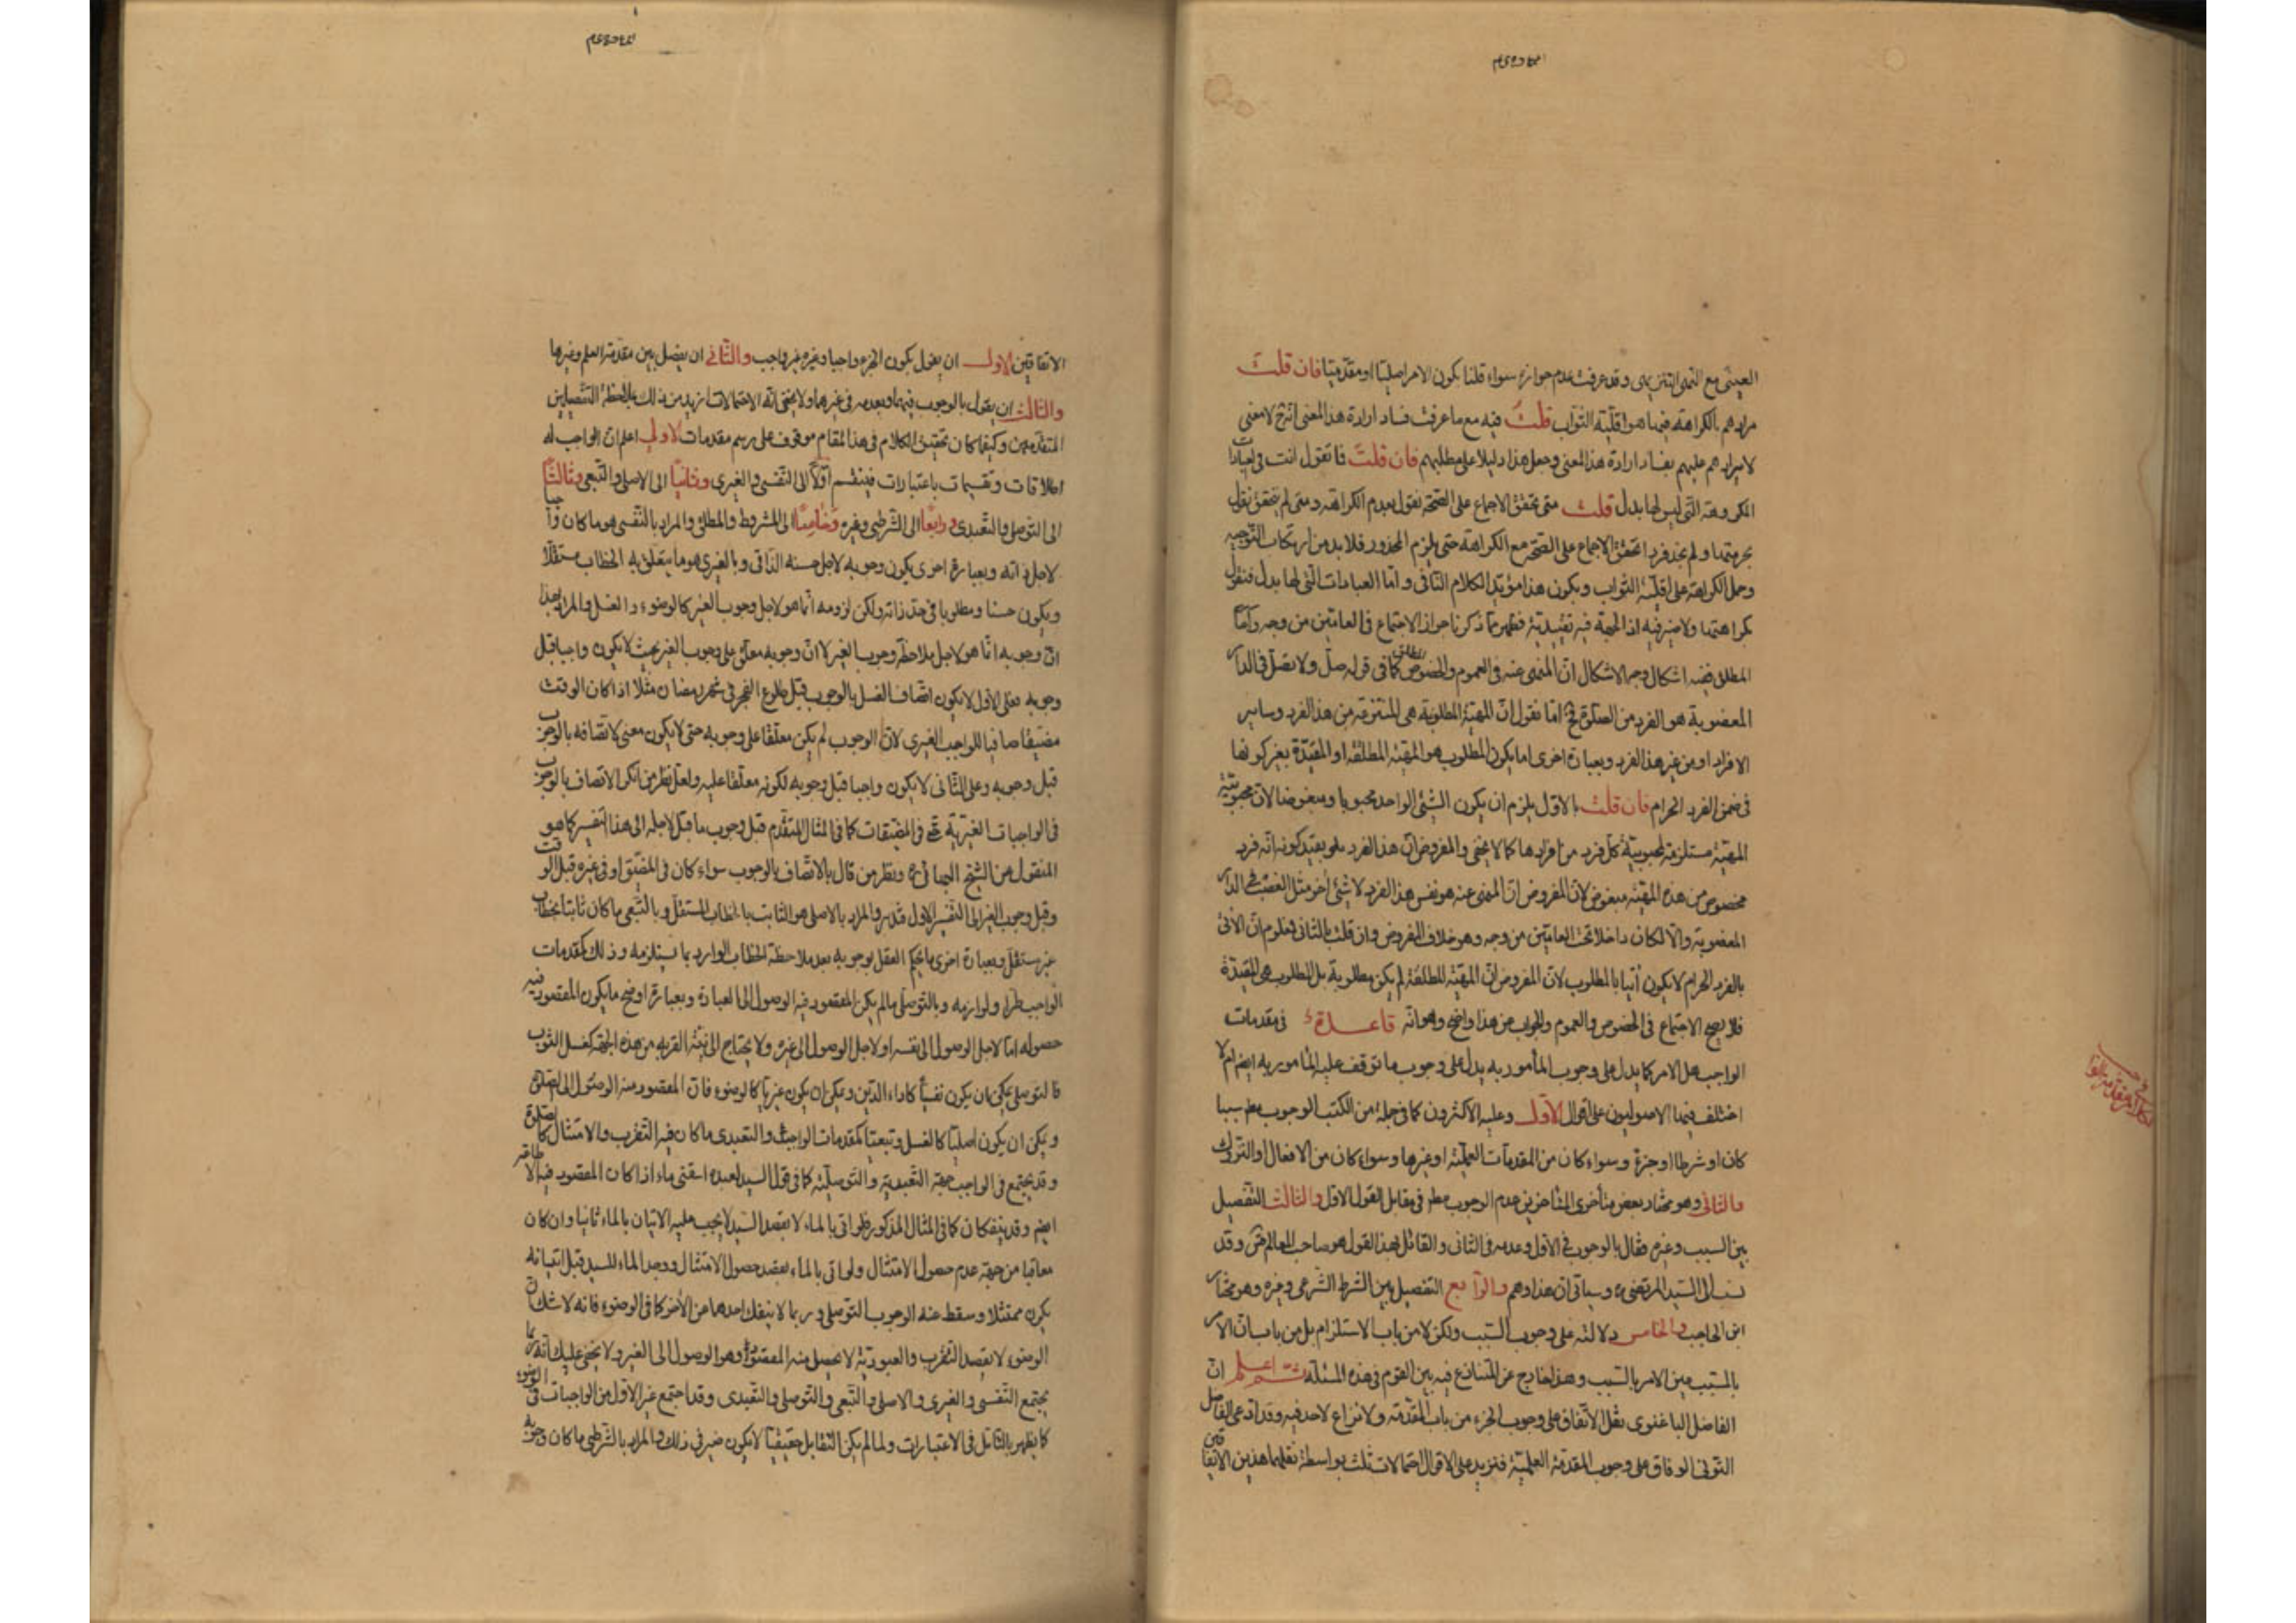 العينى مع النهى التنزيهى وقد عرفت عدم جوازه سواء قلنا بكون الامر اصليتا او مقدميتا فان قلت
مرادهم بالكراهة فيها هو اقلية الثواب قلت فيه مع ما عرفت فساد ارادة هذا المعنى انه ح لا معنى
لايرادهم عليهم بفساد ارادة هذا المعنى وجعل هذا دليلا على مطلبهم فان قلت فما تقول انت فى العبادات
المكروهة التى ليس لها بدل قلت متى تحقق الاجماع على الصحة نقول بعدم الكراهة ومتى لم يتحقق نقول
بحرمتها ولم نجد فردا تحقق الاجماع على الصحة مع الكراهة حتى يلزم المحذور فلا بد من ارتكاب التوجيه
وحمل الكراهة على اقلية الثواب ويكون هذا مؤيد الكلام الثانى واما العبادات التى لها بدل فنقول
بكراهتها ولا ضير فيه اذ الجهة فيه تقييدية فظهر مما ذكرنا جواز الاجتماع فى العامين من وجه واما
المطلق ففيه اشكال وجه الاشكال ان المنهى عنه فى العموم والخصوص المطلق كما فى قوله صل ولا تصل فى الدار
المغصوبة هو الفرد من الصلوة فح اما نقول ان المهية المطلوبة هى المنتزعة من هذا الفرد وساير
الافراد او من غير هذا الفرد وبعبارة اخرى اما يكون المطلوب هو المهية المطلقة او المقيدة بغير كونها
فى ضمن الفرد الحرام فان قلت بالاول يلزم ان يكون الشئ الواحد محبوبا ومبغوضا لان محبوبية
المهية مستلزمة لمحبوبية كل فرد من افرادها كما لا يخفى والمفروض ان هذا الفرد بقيد كونه انه فرد
مخصوص من هذه المهية مبغوض لان المفروض ان المنهى عنه هو نفس هذا الفرد لا شئ آخر مثل الغصب فى الدار
المغصوبة والا لكان داخلا تحت العامين من وجه وهو خلاف المفروض وان قلت بالثانى فمعلوم ان الآتى
بالفرد الحرام لا يكون آتيا بالمطلوب لان المفروض ان المهية المطلقة لم يكن مطلوبة بل المطلوب هى المقيدة
فلا يصح الاجتماع فى الخصوص والعموم والجواب عن هذا واضح وهو انه قاعدة فى مقدمات
الواجب هل الامر كما يدل على وجوب المأمور به يدل على وجوب ما توقف عليه المأمور به ايضم ام لا
اختلف فيها الاصوليون على اقوال الاول وعليه الاكثرون كما فى جملة من الكتب الوجوب مطم سببا
كان او شرطا او جزء وسواء كان من المقدمات العلمية او غيرها وسواء كان من الافعال او التروك
والثانى وهو مختار بعض متأخرى المتأخرين عدم الوجوب مطم فى مقابل القول الاول والثالث التفصيل
بين السبب وغيره فقال بالوجوب فى الاول وعدمه فى الثانى والقائل بهذا القول هو صاحب المعالم وقد
نسب الى السيد المرتضى وسيأتى ان هذا وهم والرابع التفصيل بين الشرط الشرعى وغيره وهو مختار
ابن الحاجب والخامس دلالته على وجوب السبب ولكن لا من باب الاستلزام بل من باب ان الامر
بالمسبب عين الامر بالسبب وهذا خارج عن المتنازع فيه بين القوم فى هذه المسئلة ثم اعلم ان
الفاضل الباغنوى نقل الاتفاق على وجوب الجزء من باب المقدمة ولا نزاع لاحد فيه وقد ادعى الفاضل
التونى الوفاق على وجوب المقدمة العلمية فتزيد على الاقوال احتمالات ثلث بواسطة نقلهما هذين الاتفاقين
الاتفاقين الاول ان يقول يكون الجزء واجبا وغيره غير واجب والثانى ان يفصل بين مقدمة العلم وغيرها
والثالث ان يقول بالوجوب فيهما وبعدمه فى غيرهما ولا يخفى انه الاحتمالات ازيد من ذلك بملاحظة التفصيلين
المتقدمين وكيفما كان تحقيق الكلام فى هذا المقام موقوف على رسم مقدمات الاولى اعلم ان الواجب له
اطلاقات وتقسيمات باعتبارات فينقسم اولا الى النفسى والغيرى وثانيا الى الاصلى والتبعى وثالثا
الى التوصلى والتعبدى ورابعا الى الشرطى وغيره وخامسا الى المشروط والمطلق والمراد بالنفسى هو ما كان واجبا
لاجل ذاته وبعبارة اخرى يكون وجوبه لاجل حسنه الذاتى وبالغيرى هو ما يتعلق به الخطاب مستقلا
ويكون حسنا ومطلوبا فى حد ذاته ولكن لزومه انما هو لاجل وجوب الغير كالوضوء والغسل والمراد بهذا
ان وجوبه انما هو لاجل ملاحظة وجوب الغير لا ان وجوبه معلق على وجوب الغير بحيث لا يكون واجبا قبل
وجوبه فعلى الاول لا يكون اتصاف الغسل بالوجوب قبل طلوع الفجر فى شهر رمضان مثلا اذا كان الوقت
مضيقا منافيا للواجب الغيرى لان الوجوب لم يكن معلقا على وجوبه حتى لا يكون معنى لاتصافه بالوجوب
قبل وجوبه وعلى الثانى لا يكون واجبا قبل وجوبه لكونه معلقا عليه ولعل نظر من انكر الاتصاف بالوجوب
فى الواجبات الغيرية حتى فى المضيقات كما فى المثال المتقدم قبل وجوب ما قبل لاجله الى هذا التفسير كما هو
المنقول عن الشيخ البهائى ره ونظر من قال بالاتصاف بالوجوب سواء كان فى المضيق او فى غيره قبل الوقت
وقبل وجوب الغير الى التفسير الاول فتدبر والمراد بالاصلى هو الثابت بالخطاب المستقل وبالتبعى ما كان ثابتا بخطاب
غير مستقل وبعبارة اخرى ما يحكم العقل بوجوبه بعد ملاحظة الخطاب الوارد بما يستلزمه وذلك كمقدمات
الواجب طرا ولوازمه وبالتوصلى ما لم يكن المقصود فيه الوصول الى العبادة وبعبارة اوضح ما يكون المقصود فيه
حصوله اما لاجل الوصول الى نفسه او لاجل الوصول الى غيره ولا يحتاج الى نية القربة من هذه الجهة كغسل الثوب
فالتوصلى يمكن ان يكون نفسيا كاداء الدين ويمكن ان يكون غيريا كالوضوء فان المقصود منه الوصول الى الصلوة
ويمكن ان يكون اصليا كالغسل وتبعيا كمقدمات الواجب والتعبدى ما كان فيه التقرب والامتثال كالصلوة
وقد يجتمع فى الواجب جهة التعبدية والتوصلية كما فى قول السيد لعبده اسقنى ماء اذا كان المقصود فيه الاطاعة
ايضم وقد ينفكان كما فى المثال المذكور فلو اتى بالماء لا بقصد السيد لا يجب عليه الاتيان بالماء ثانيا وان كان
معاقبا من جهة عدم حصول الامتثال ولو اتى بالماء بقصد حصول الامتثال ووجد الماء للسيد قبل اتيانه
يكون ممتثلا وسقط عنه الوجوب التوصلى وربما لا ينفك احدهما عن الآخر كما فى الوضوء فانه لا شك ان
الوضوء لا بقصد التقرب والعبودية لا يحصل منه المقصود وهو الوصول الى الغير ولا يخفى عليك انه ربما
يجتمع النفسى والغيرى والاصلى والتبعى والتوصلى والتعبدى وقد اجتمع غير الاول من الواجبات فى الوضوء
كما يظهر بالتأمل فى الاعتبارات ولما لم يكن التقابل حقيقيا لا يكون ضير فى ذلك والمراد بالشرطى ما كان وجوبه